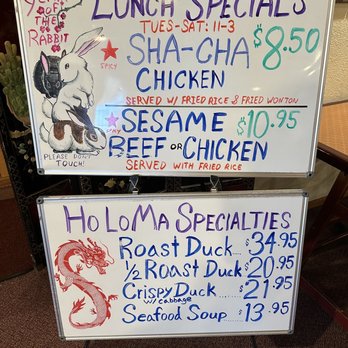 LUNCH SPECIALS
YEAR
OF THE
RABBIT
TUES-SAT: 11-3
SHA-CHA $8.50
SPICY
CHICKEN
SERVED W/ FRIED RICE & FRIED WONTON
SESAME $10.95
BEEF OR CHICKEN
SERVED WITH FRIED RICE
PLEASE DON'T
TOUCH!
HOLOMA SPECIALTIES
ROAST DUCK... $34.95
1/2 ROAST DUCK $20.95
CRISPY DUCK ... $21.95
W/ CABBAGE
SEAFOOD SOUP.. $13.95